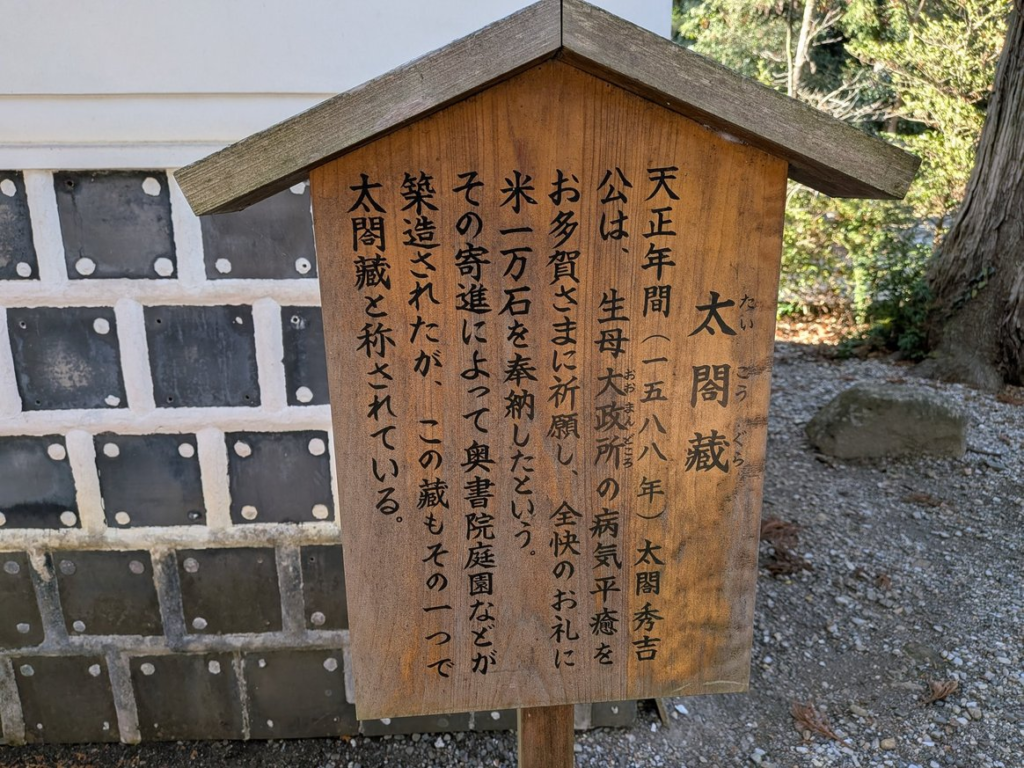 太閤蔵
たいこうぐら
天正年間（一五八八年）太閤秀吉
公は、生母大政所の病気平癒を
おおまんどころ
お多賀さまに祈願し、全快のお礼に
米一万石を奉納したという。
その寄進によって奥書院庭園などが
築造されたが、この蔵もその一つで
太閤蔵と称されている。